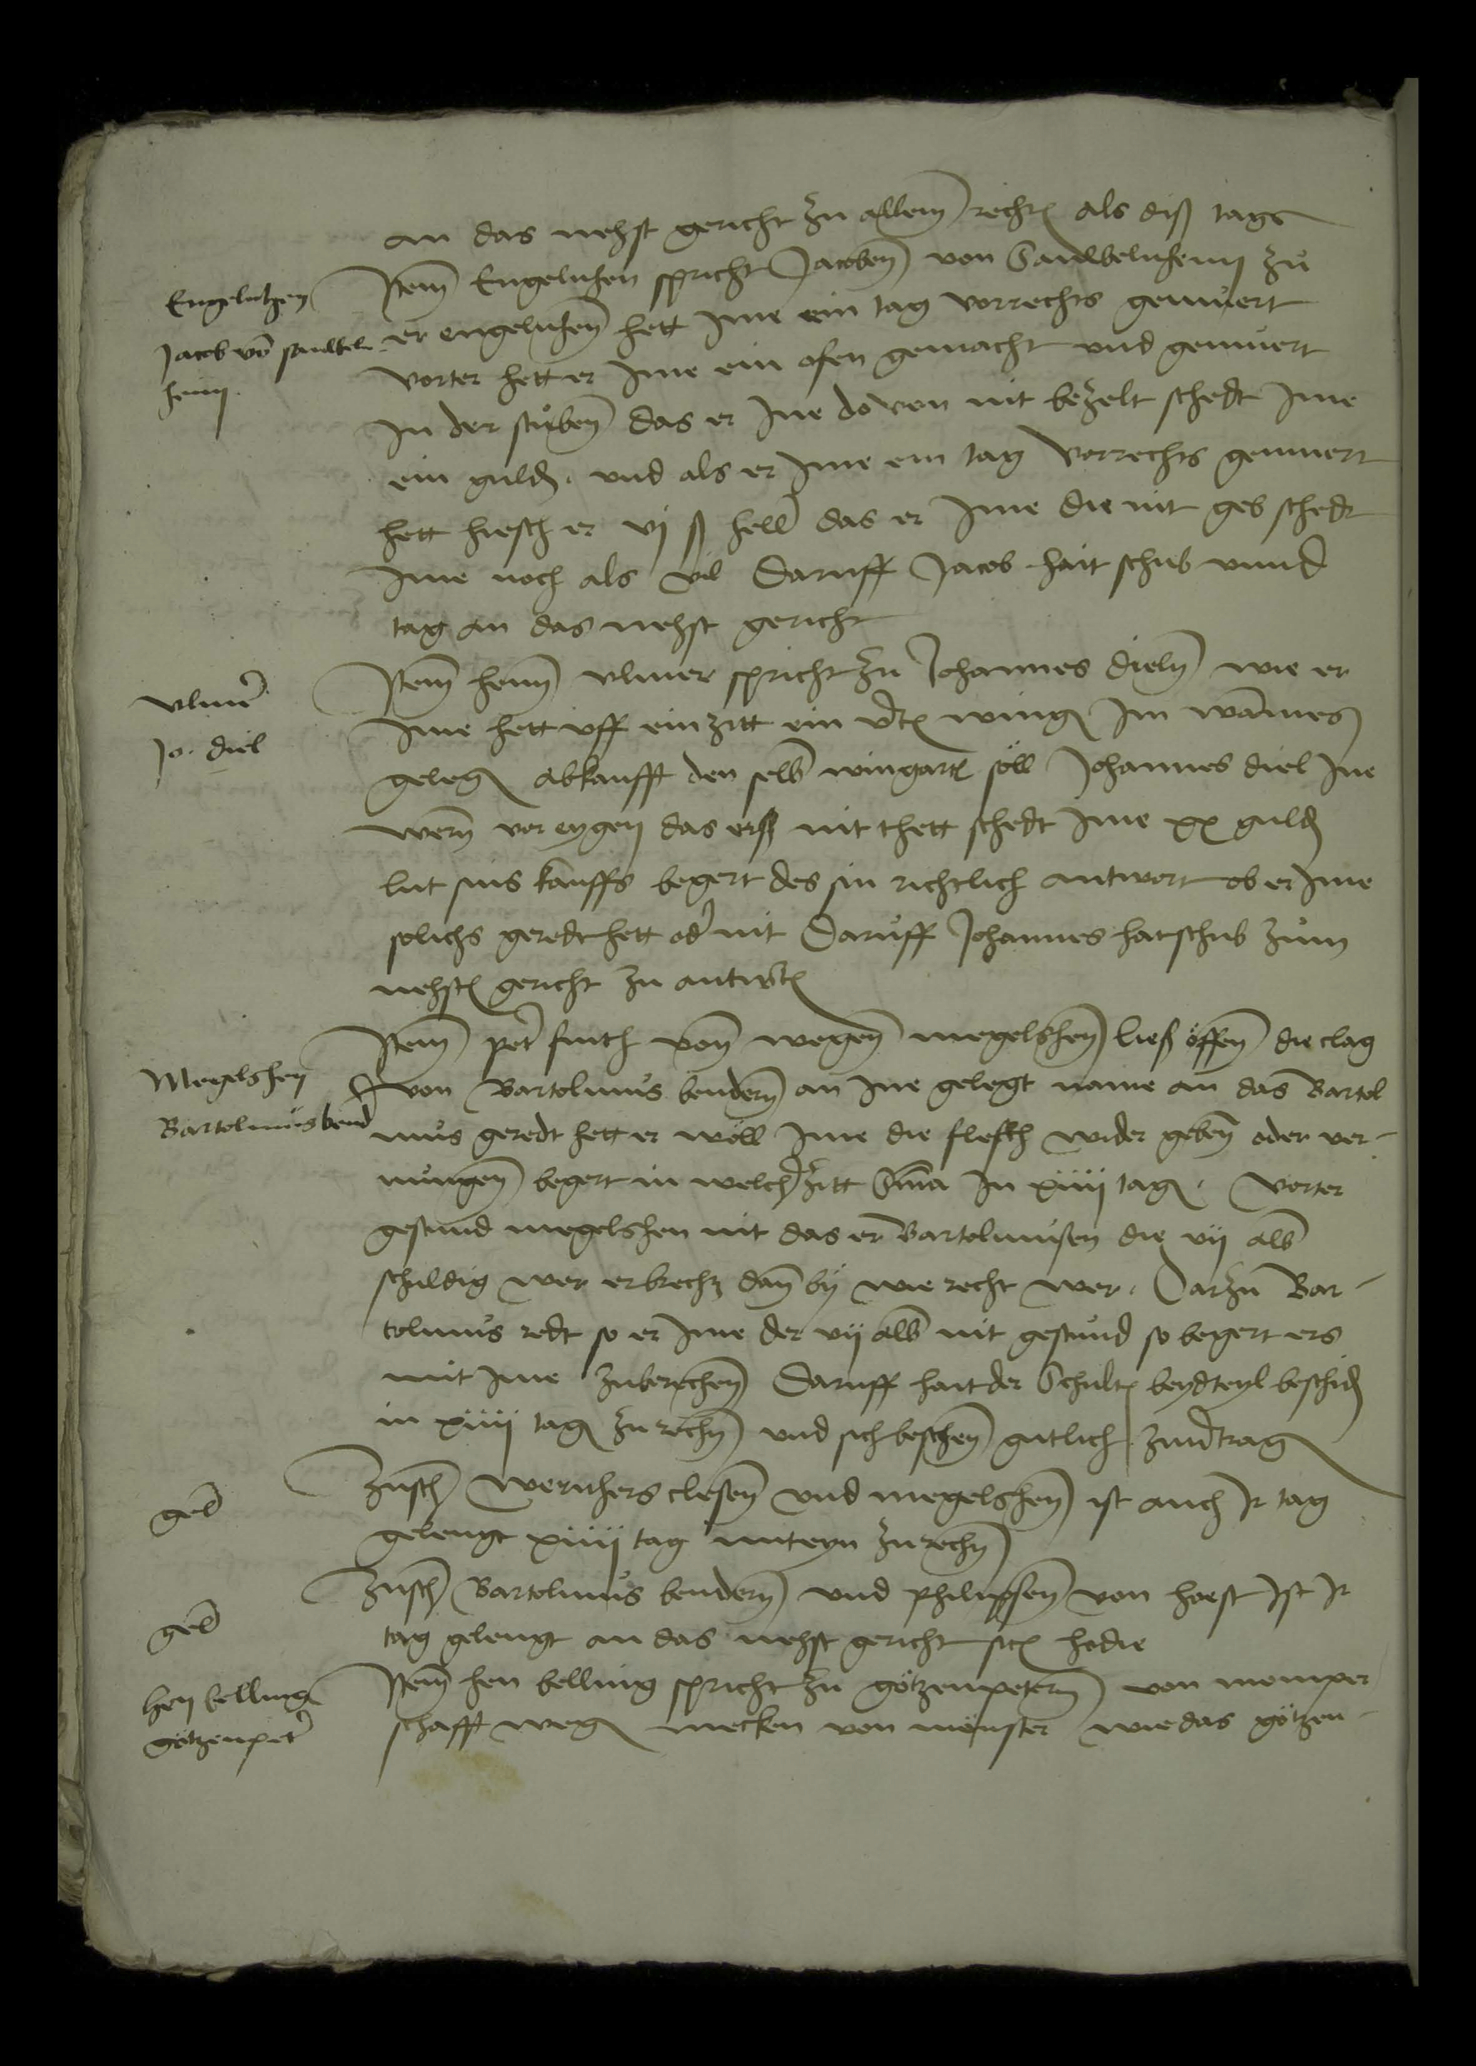 an das nehst gericht zu allem rechten als diß tags
Engelnhen
Jacob von sauwel-
heim
Item Engelnhen spricht Jacoben von Sauwelnheim zu
er engelnhen hett ime ein tag vorrechts gemuert
vorter hett er ime ein ofen gemacht und gemuert
in der stuben das er ine do von nit bezelt schedt ime
ein gulden. und als er ime ein tag vorrechts gemuert
hett hiesch er vj ß heller das er ime die nit geb schedt
ime noch als vil Daruff Jacob hait schub unnd
tag an das nehst gericht
Ulmer
Jo. diel
Item henn ulmer spricht zu Johannes dieln wie er
ime hett uff ein zitt ein virtel wingart im
gelegen abkaufft den selben wingarten söll Johannes diel ine
wern vor eygen das erß nit thett schedt ime xx gulden
lut sins kauffs begert des sin richtlich antwort ob er ime
solichs geredt hett oder nit Daruff Johannes hat schub zum
nehsten gericht zu antworten
Megelshen
Bartolmus bender
Item peter finth von wegen megelshen ließ öffen die clag
von Bartolmus bendern an ine gelegt name an das Bartol
mus geredt hett er wöll ime die flesch wider geben oder ver-
nungen begert in welcher zitt Summa in xiiij tagen. Vorter
gestund megelshen nit das er Bartolmusen die vij albus
schuldig wer erbrecht dan by wie recht wer. Darzu Bar-
tolmus redt so er ime der vij albus nit gestund so begert ers
mit ime zuberechen Daruff hait der Schultes beydteyl bescheiden
in xiiij tagen zu rechen und sich beschen gutlich zuvertragen
gelengt
Zuschen wernhers clesen und megelshen ist auch ir tag
gelengt xiiij tag miteyn zu rechen
gelengt
Zuschen Bartolmus bendern und philipsen von hoest ist ir
tag gelengt an das nehst gericht sicut hodie
Hen belling
götzenpeter
Item hen belling spricht zu götzenpetern von momper
schafft wegen mecken von mönster wie das götzen-